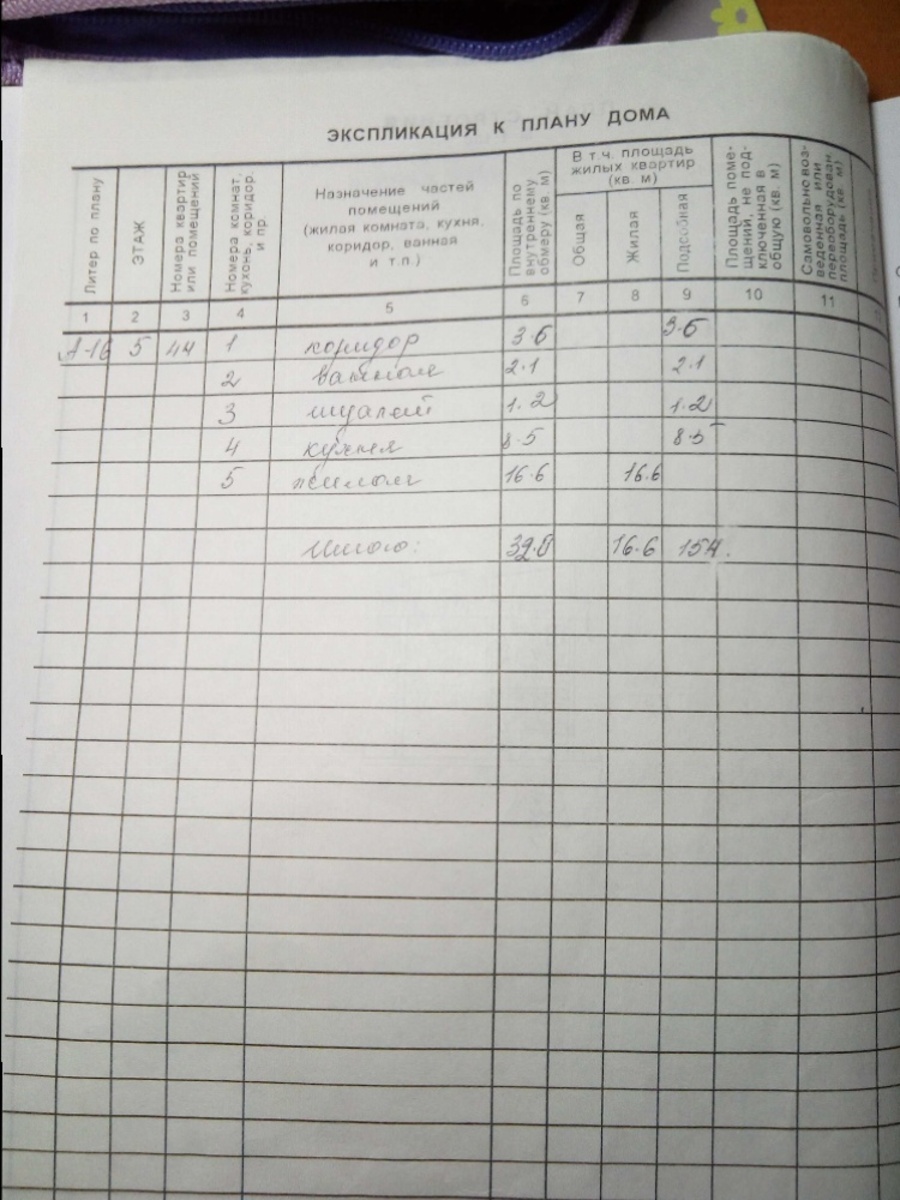 ЭКСПЛИКАЦИЯ К ПЛАНУ ДОМА
Литер по плану
ЭТАЖ
Номера квартир или помещений
Номера комнат, кухонь, коридор. и пр.
Назначение частей
помещений
(жилая комната, кухня,
коридор, ванная
и т.п.)
Площадь по внутреннему обмеру (кв. м)
В т.ч. площадь
жилых квартир
(кв. м)
Общая
Жилая
Подсобная
Площадь поме-
щений, не под-
ключенная в
общую (кв. м)
Самовольно воз-
веденная или
переоборудован.
площадь (кв. м)
1 2 3 4 5 6 7 8 9 10 11
А-16 5 44 1 коридор 3.6 3.6
2 ванная 2.1 2.1
3 туалет 1.2 1.2
4 кухня 8.5 8.5
5 жилая 16.6 16.6
Итого: 32.0 16.6 15.4.